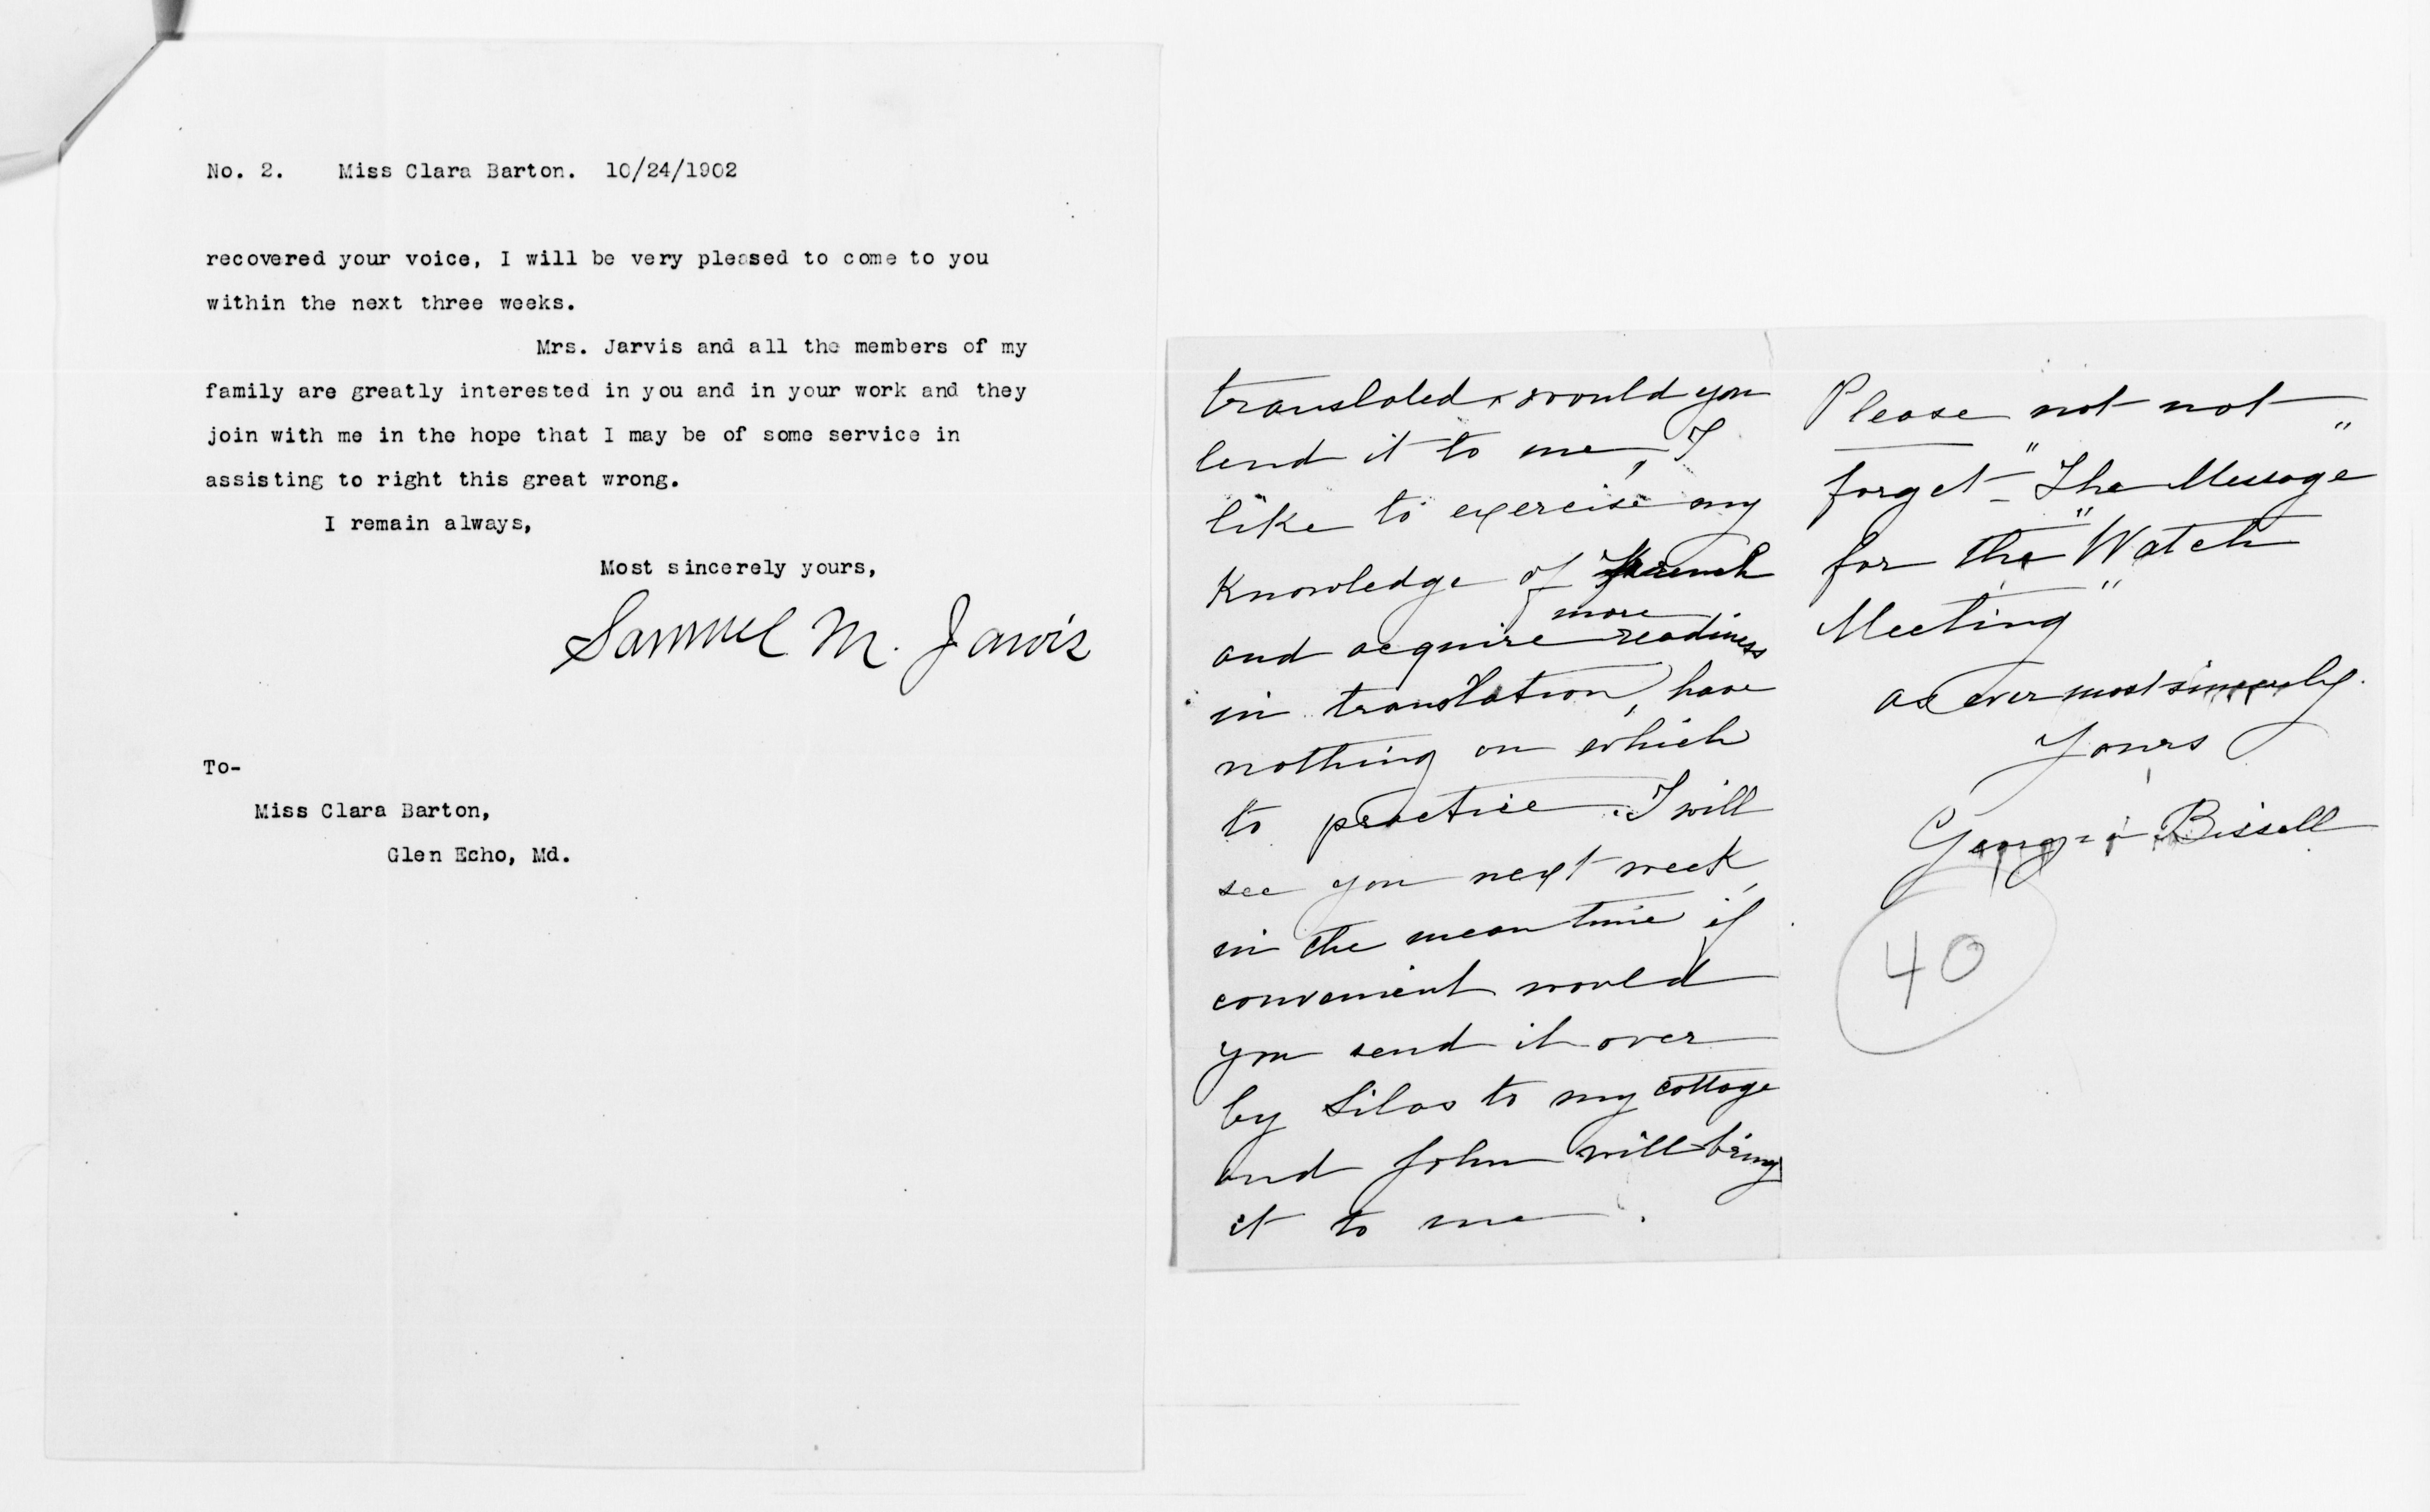 No. 2. Miss Clara Barton. 10/24/1902
recovered your voice, I will be very pleased to come to you
within the next three weeks.
Mrs. Jarvis and all the members of my
family are greatly interested in you and in your work and they
join with me in the hope that I may be of some service in
assisting to right this great wrong.
I remain always,
Most sincerely yours,
Samuel M. Jarvis
To-
Miss Clara Barton,
Glen Echo, Md.
translated, would you
lend it to me, I
like to exercise my
knowledge of French
and acquire more readiness
in translation, have
nothing on which
to practice. I will
see you next week,
in the mean time if
convenient would
you send it over
by Silas to my cottage
and John will bring
it to me.
Please not not
forget "The Message"
for the "Watch
Meeting"
as ever most sincerely
Yours
Georgia Bissell
40